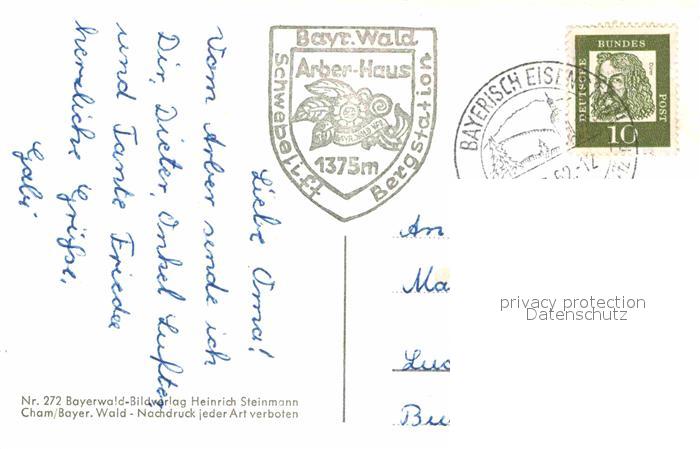 Liebe Oma!
Vom Arber sende ich
Dir, Dieter, Onkel
und Tante Friedel
herzliche Grüße,
Gabi
Bayr. Wald
Arber-Haus
Schwebelift
Bergstation
1375m
BAYERISCH EISEN
62-12
DEUTSCHE
BUNDES
POST
Dürer
10
An
Ma
Lud
Bu
privacy protection
Datenschutz
Nr. 272 Bayerwald-Bildverlag Heinrich Steinmann
Cham/Bayer. Wald - Nachdruck jeder Art verboten